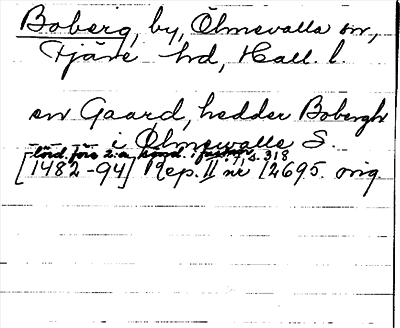 Boberg, by, Ölmevalla sn,
Fjäre hd, Hall. l.
en Gaard, hedder Bobergh
i Ølmewalle S.
lörd. före 2:a sönd. i fastan, 7, s. 318
[1482-94] Rep. II nr 12695. orig.